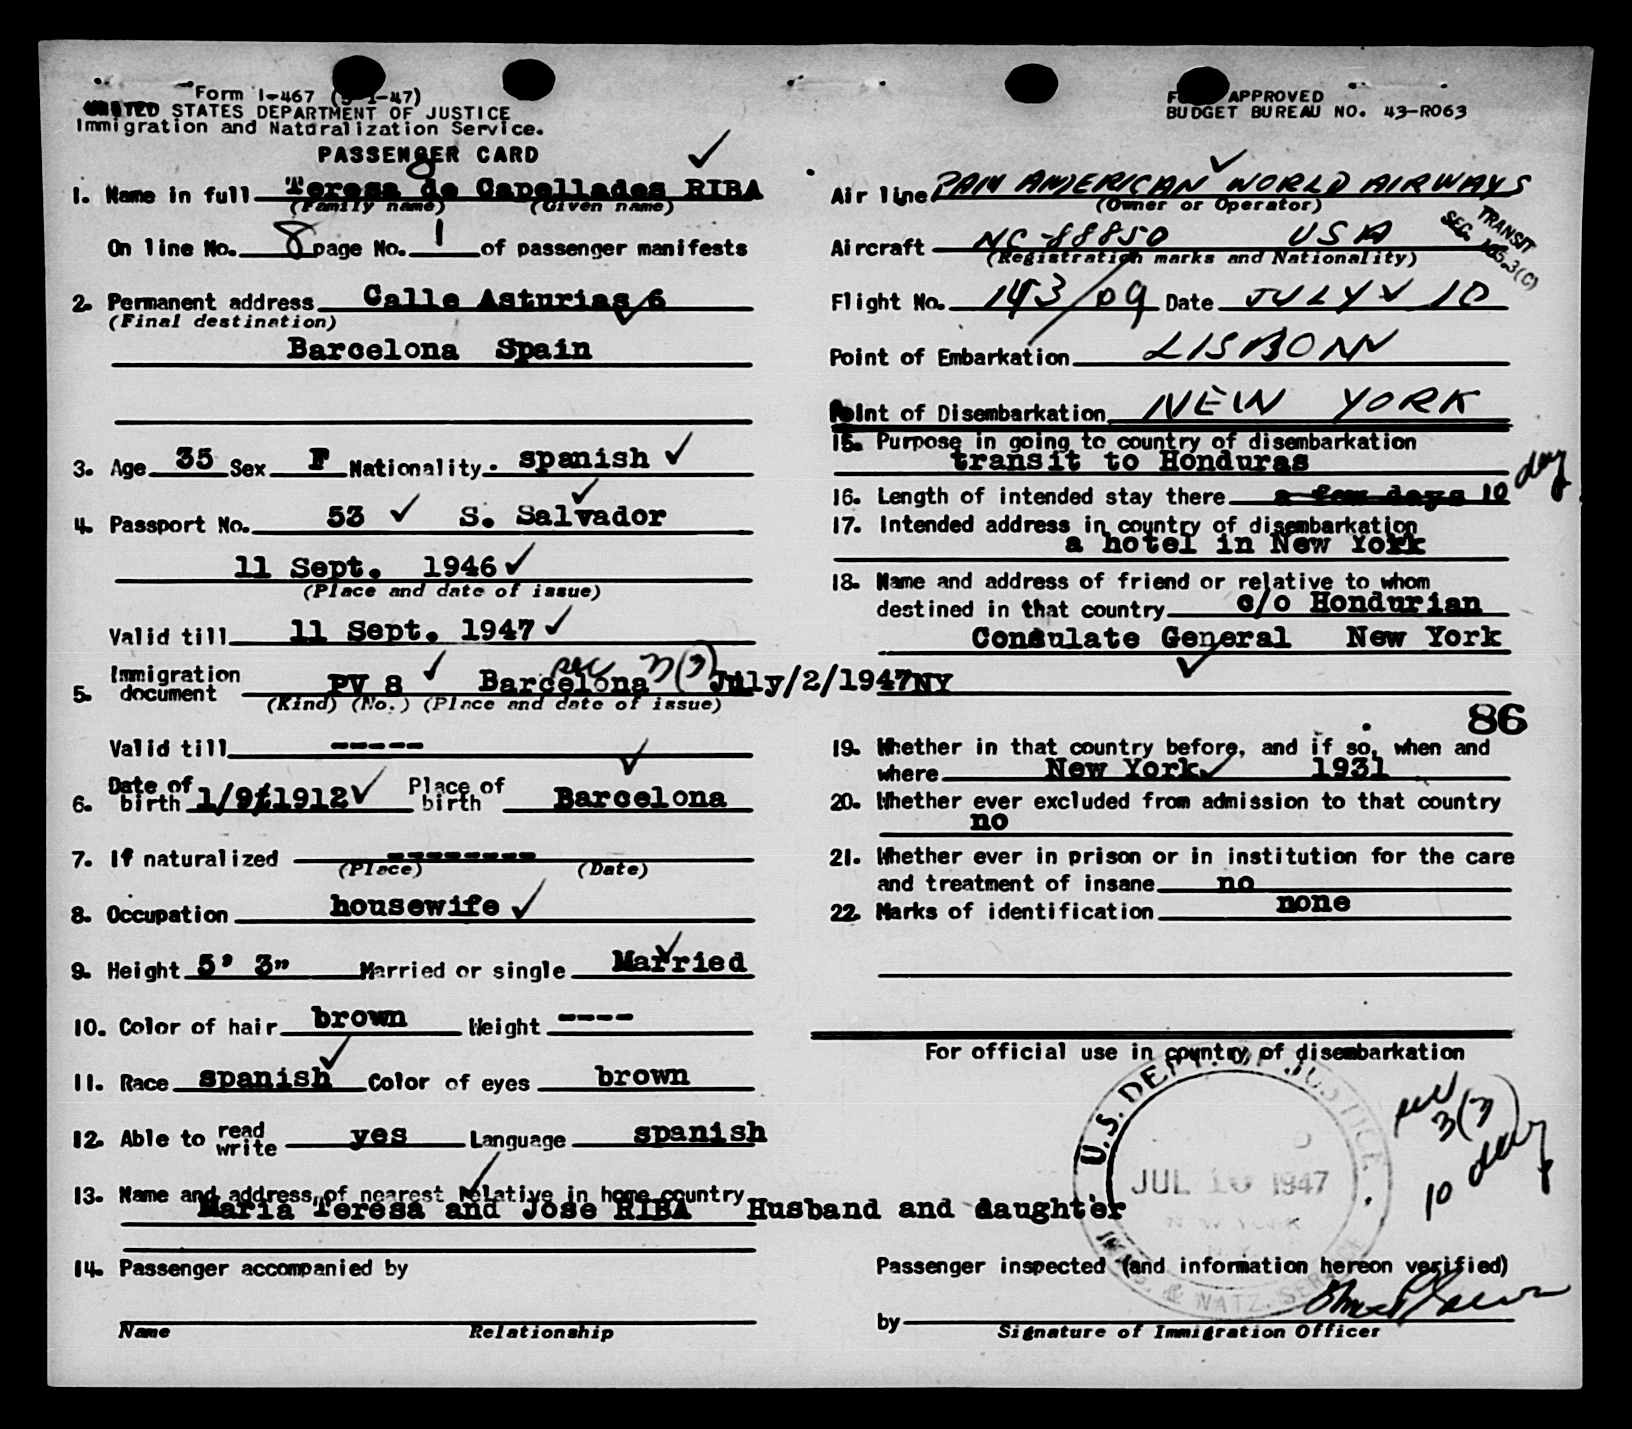 Form I-467 (5-1-47)
UNITED STATES DEPARTMENT OF JUSTICE
Immigration and Naturalization Service.
PASSENGER CARD
1. Name in full Teresa de Capellades RIBA
(Family name) (Given name)
On line No. 8 page No. 1 of passenger manifests
2. Permanent address Calle Asturias 6
(Final destination)
Barcelona Spain
3. Age 35 Sex F Nationality. spanish
4. Passport No. 53 S. Salvador
11 Sept. 1946
(Place and date of issue)
Valid till 11 Sept. 1947
sec 3(3)
5. Immigration document PV 8 Barcelona July/2/1947
(Kind) (No.) (Place and date of issue)
Valid till -----
6. Date of birth 1/9/1912 Place of birth Barcelona
7. If naturalized --------
(Place) (Date)
8. Occupation housewife
9. Height 5' 3" Married or single Married
10. Color of hair brown Weight ----
11. Race spanish Color of eyes brown
12. Able to read write yes Language spanish
13. Name and address of nearest relative in home country
Maria Teresa and Jose RIBA Husband and daughter
14. Passenger accompanied by
Name Relationship
FORM APPROVED
BUDGET BUREAU NO. 43-R063
Air line PAN AMERICAN WORLD AIRWAYS
(Owner or Operator)
Aircraft NC-88850 USA
(Registration marks and Nationality)
TRANSIT
SEC. 105.3(C)
Flight No. 143/09 Date JULY 10
Point of Embarkation LISBON
Point of Disembarkation NEW YORK
15. Purpose in going to country of disembarkation
transit to Honduras
16. Length of intended stay there a few days 10 days
17. Intended address in country of disembarkation
a hotel in New York
18. Name and address of friend or relative to whom
destined in that country c/o Hondurian
Consulate General New York
NY
86
19. Whether in that country before, and if so, when and
where New York 1931
20. Whether ever excluded from admission to that country
no
21. Whether ever in prison or in institution for the care
and treatment of insane no
22. Marks of identification none
For official use in country of disembarkation
U.S. DEPT. OF JUSTICE
JUL 10 1947
NEW YORK
N.Y.
IMM. & NATZ. SERVICE
sec
3(3)
10 days
Passenger inspected (and information hereon verified)
by
Signature of Immigration Officer